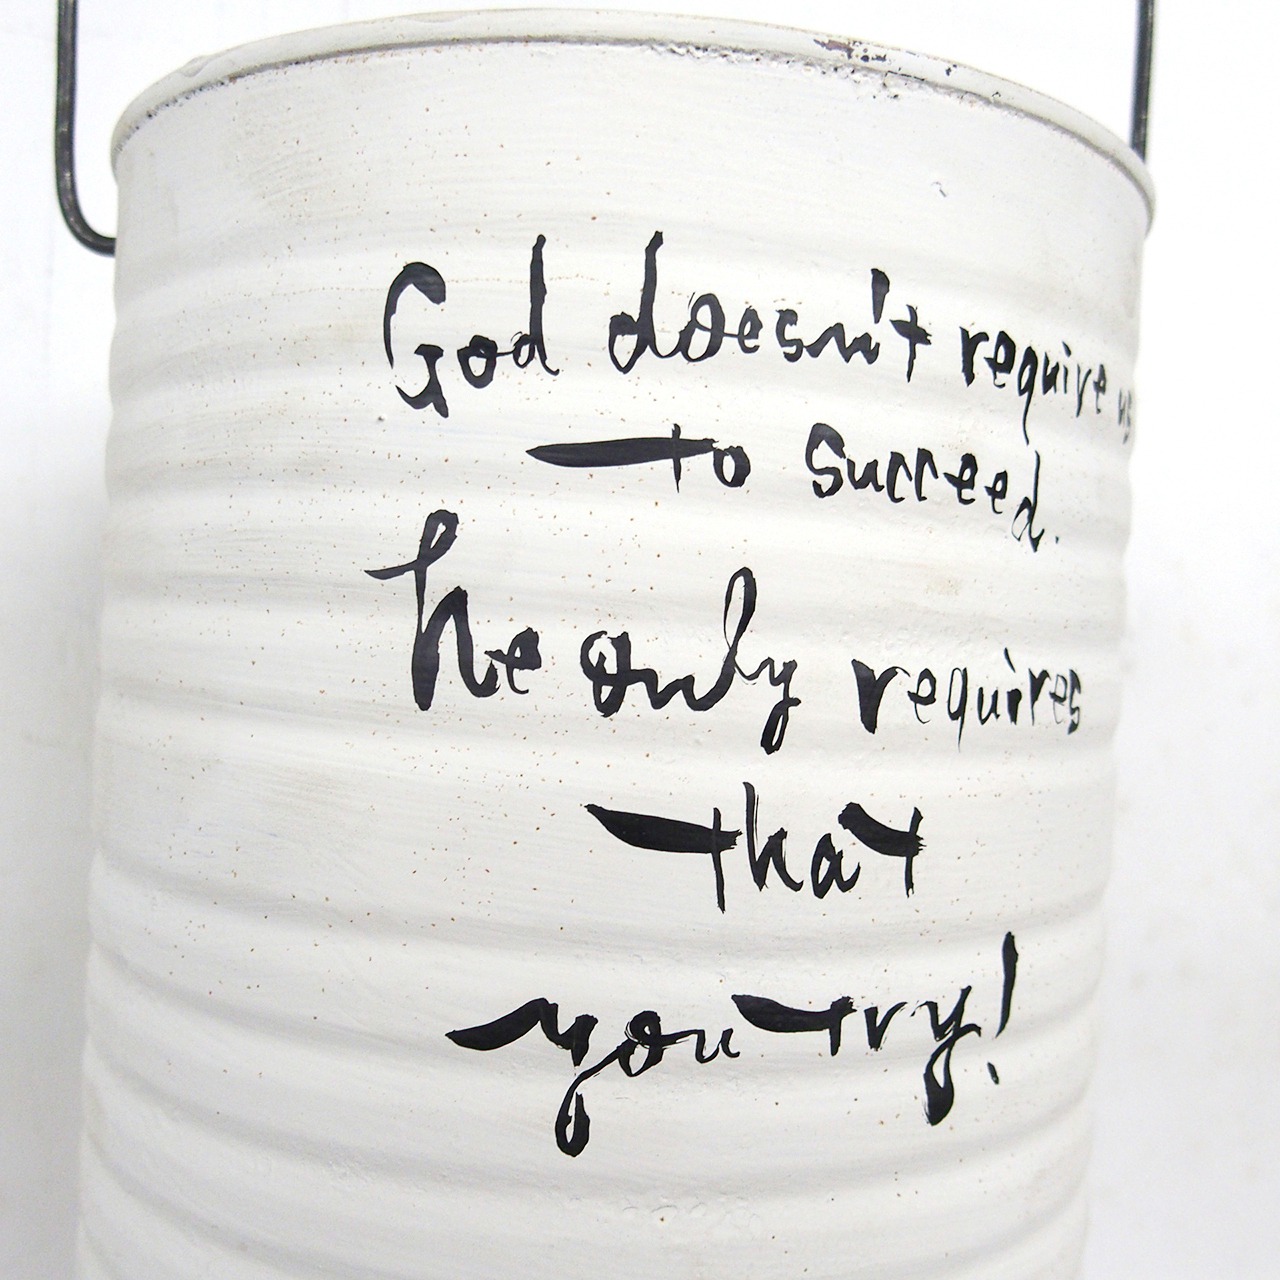 God doesn't require us
to succeed.
he only requires
that
you try!